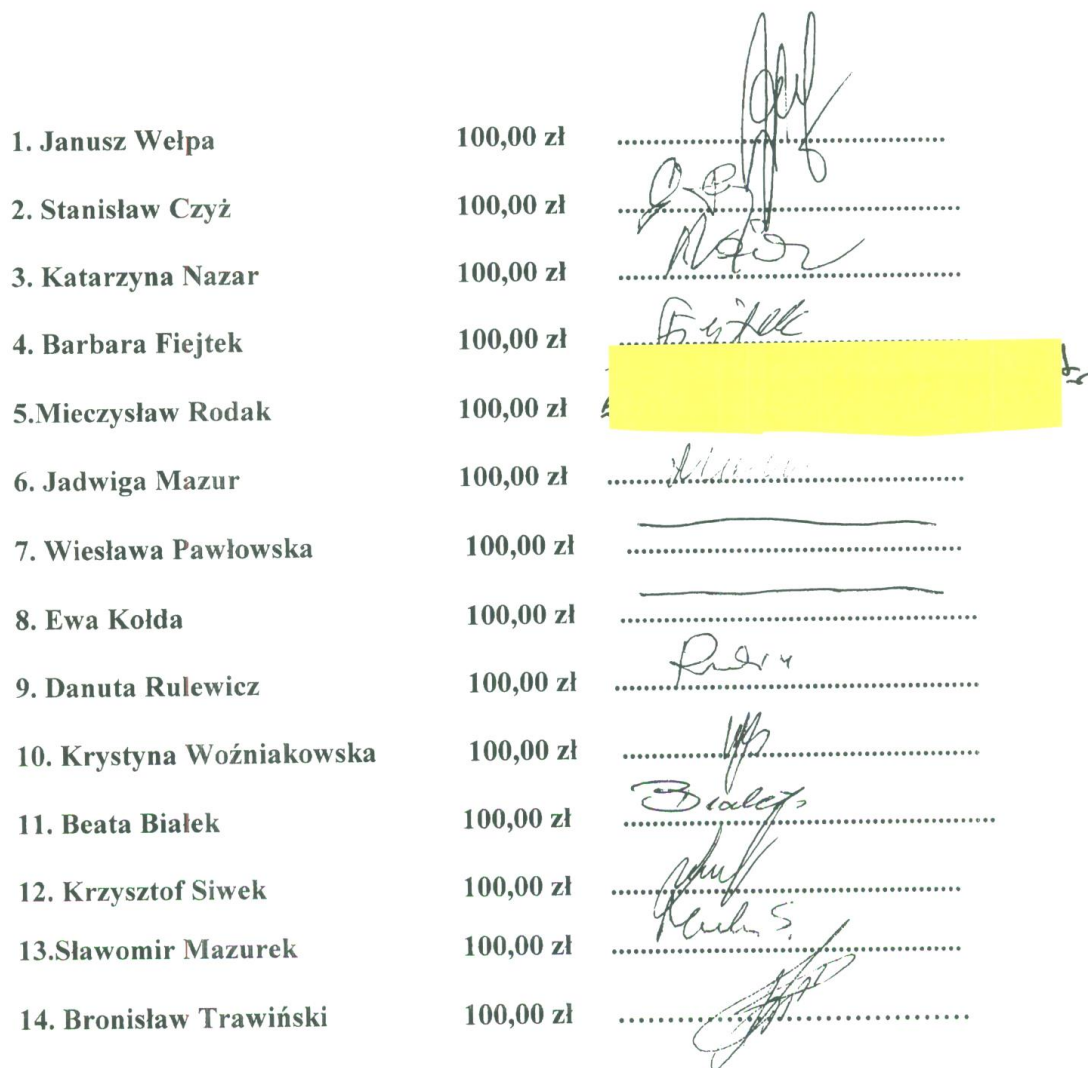 1. Janusz Wełpa 100,00 zł
2. Stanisław Czyż 100,00 zł
3. Katarzyna Nazar 100,00 zł
4. Barbara Fiejtek 100,00 zł Fiejtek
5.Mieczysław Rodak 100,00 zł
6. Jadwiga Mazur 100,00 zł
7. Wiesława Pawłowska 100,00 zł
8. Ewa Kołda 100,00 zł
9. Danuta Rulewicz 100,00 zł
10. Krystyna Woźniakowska 100,00 zł
11. Beata Białek 100,00 zł
12. Krzysztof Siwek 100,00 zł
13.Sławomir Mazurek 100,00 zł
14. Bronisław Trawiński 100,00 zł